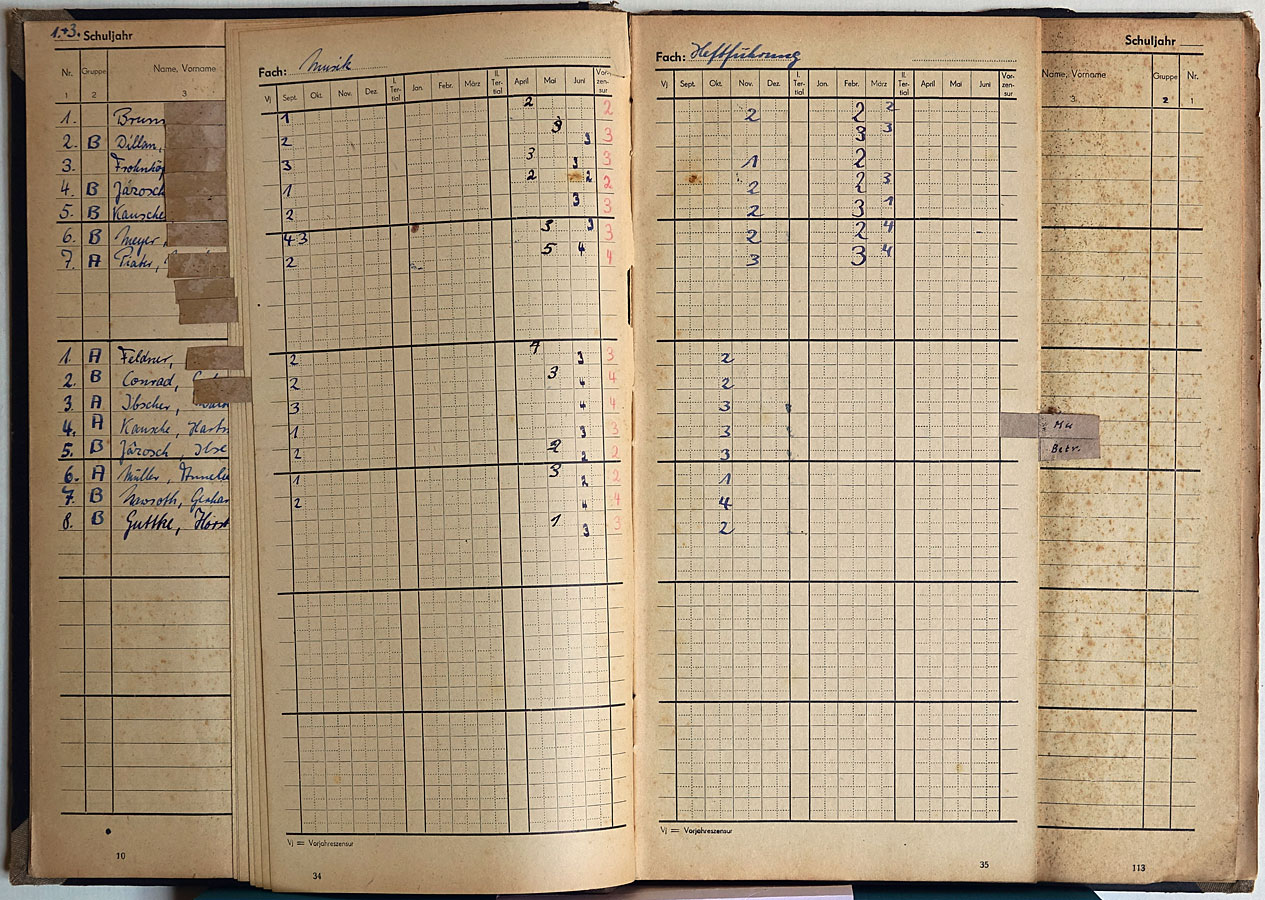 1.+3. Schuljahr
Nr. Gruppe Name, Vorname
1 2 3
1. Brum
2. B Dillan,
3. Frohnhöf
4. B Järosch
5. B Kausche
6. B Meyer,
7. A
1. A Feldner,
2. B Conrad,
3. A Ibscher,
4. A Kausche, Hart
5. B Järosch, Ilse
6. A Müller, Annelie
7. B
8. B Guttke, Horst
10
Fach: Musik
Vj Sept. Okt. Nov. Dez. I. Ter-tial Jan. Febr. März II. Ter-tial April Mai Juni Vor-zen-sur
1 2 2
2 3 3 3
3 3 3 3
1 2 2 2
2 3 3
4 3 3 3 3
2 5 4 4
2 4 3 3
2 3 4 4
3 4 4
1 3 3
2 2 2 2
1 3 2 2
2 4 4
1 3 3
Vj = Vorjahreszensur
34
Fach: Heftführung
Vj Sept. Okt. Nov. Dez. I. Ter-tial Jan. Febr. März II. Ter-tial April Mai Juni Vor-zen-sur
2 2 2
3 3
1 2
2 2 3
2 3 1
2 2 4
3 3 4
2
2
3
3
3
1
4
2
Vj = Vorjahreszensur
35
Schuljahr
Name, Vorname Gruppe Nr.
3 2 1
Mu
Betr.
113